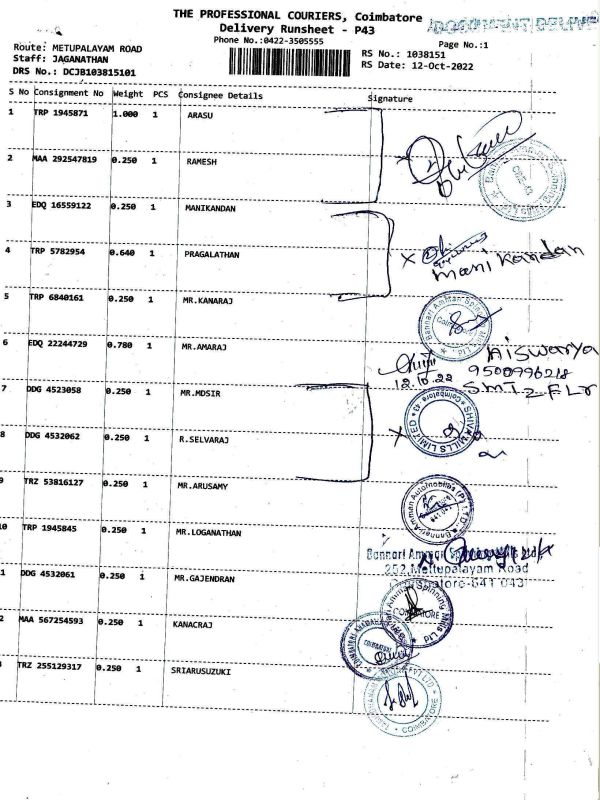 THE PROFESSIONAL COURIERS, Coimbatore
Delivery Runsheet - P43
Phone No.:0422-3505555
Page No.:1
Route: METUPALAYAM ROAD
Staff: JAGANATHAN
DRS No.: DCJB103815101
RS No.: 1038151
RS Date: 12-Oct-2022
S No Consignment No Weight PCS Consignee Details Signature
1 TRP 1945871 1.000 1 ARASU
2 MAA 292547819 0.250 1 RAMESH
3 EDQ 16559122 0.250 1 MANIKANDAN
4 TRP 5782954 0.640 1 PRAGALATHAN
Mani Kandan
5 TRP 6840161 0.250 1 MR.KANARAJ
6 EDQ 22244729 0.780 1 MR.AMARAJ
Aiswarya
9500996218
12.10.22
7 DDG 4523058 0.250 1 MR.MDSIR
SHIVA MILLS LIMITED
8 DDG 4532062 0.250 1 R.SELVARAJ
9 TRZ 53816127 0.250 1 MR.ARUSAMY
Bannari Amman Automobiles (P) LTD.
10 TRP 1945845 0.250 1 MR.LOGANATHAN
Bannari Amman
252,Mettupalayam Road
1 DDG 4532061 0.250 1 MR.GAJENDRAN
COIMBATORE
2 MAA 567254593 0.250 1 KANACRAJ
TRZ 255129317 0.250 1 SRIARUSUZUKI
COIMBATORE